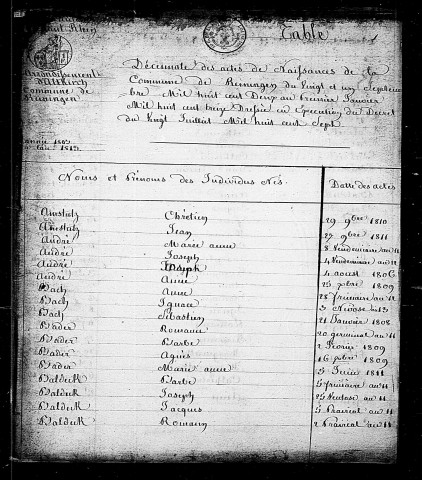 Table 1
Haut Rhin
arrondissement
d'Altkirch
Commune de
Reiningen
Décennale des actes de Naissances de la
Commune de Reiningen du Vingt et un Septem
bre Mil huit cent Deux au premier Janvier
Mil huit cent treize Dressée en Execution du Décret
du Vingt Juillet Mil huit cent Sept
Noms et Prénoms des Individus Nés. Datte des actes
Amstutz Chrétien 29 9bre 1810
Amstutz Jean 27 9bre 1811
André Marie anne 8 Vendemiaire an 11
André Joseph 4 Vendemiaire an 12
André Joseph 4 aoust 1806
André Anne 25 xbre 1809
Bach Anne 28 frimaire an 12
Bach Ignace 3 Nivose an 13
Bach Sébastien 21 Janvier 1808
Bader Romain 20 germinal an 11
Bader Barbe 2 Fevrier 1809
Bader Agnès 16 xbre 1809
Bader Marie anne 5 Juin 1811
Baldeck Barbe 5 frimaire an 11
Baldeck Joseph 25 Ventose an 11
Baldeck Jacques 5 Prairial an 11
Baldeck Romain 2 Prairial an 12